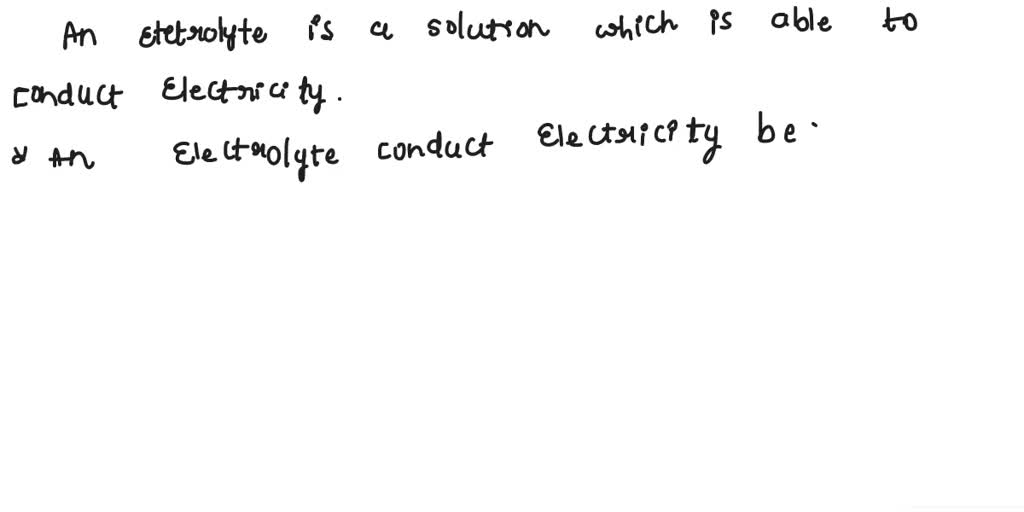 An Eletrolyte is a solution which is able to
conduct Electricity.
* An Electrolyte conduct Electricity be